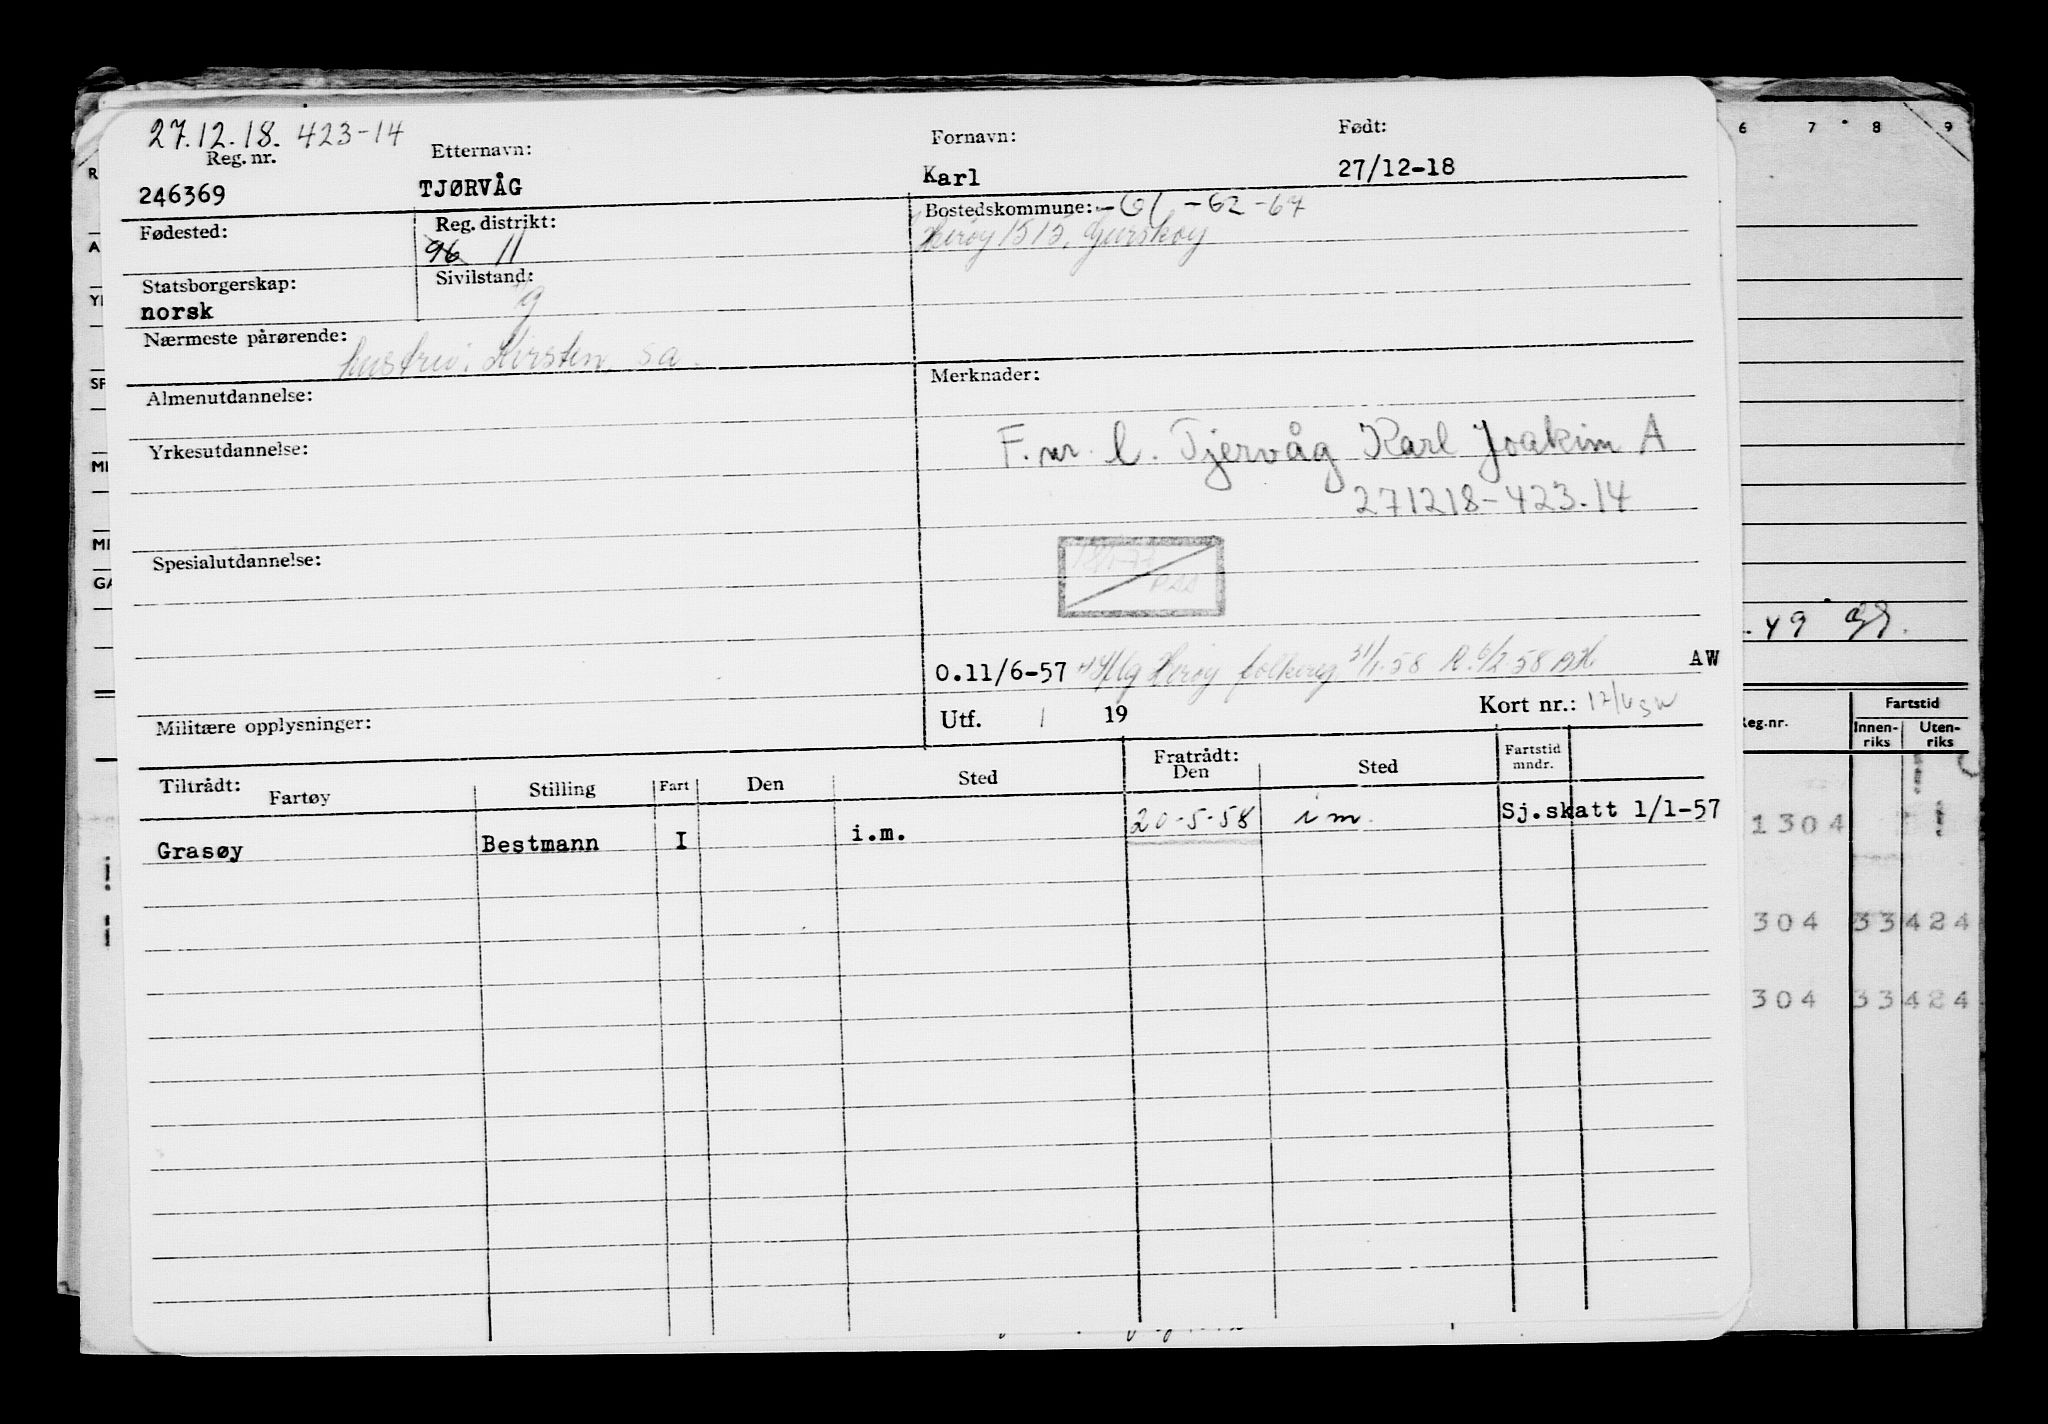 27.12.18. 423-14
Reg. nr.
Etternavn:
Fornavn:
Født:
246369
TJØRVÅG
Karl
27/12-18
Fødested:
Reg. distrikt:
96 11
Bostedskommune: -61 -62 -67
Herøy 1515, Gurskøy
Statsborgerskap:
Sivilstand:
norsk
g
Nærmeste pårørende:
hustru: Kirsten, sa.
Almenutdannelse:
Merknader:
Yrkesutdannelse:
F. nr. l. Tjervåg Karl Joakim A
271218-423.14
Spesialutdannelse:
O.11/6-57 Herøy folkereg 31/1-58 R. 6/2-58
AW
Militære opplysninger:
Utf. / 19
Kort nr.:
Tiltrådt:
Fartøy
Stilling
Fart
Den
Sted
Fratrådt:
Den
Sted
Fartstid
mndr.
Grasøy
Bestmann
I
i.m.
20-5-58
i m.
Sj.skatt 1/1-57
6 7 8 9
R
A
SP
GA
. 49
Reg.nr.
Fartstid
Innen-
riks
Uten-
riks
1304
304 33 424
304 33 424